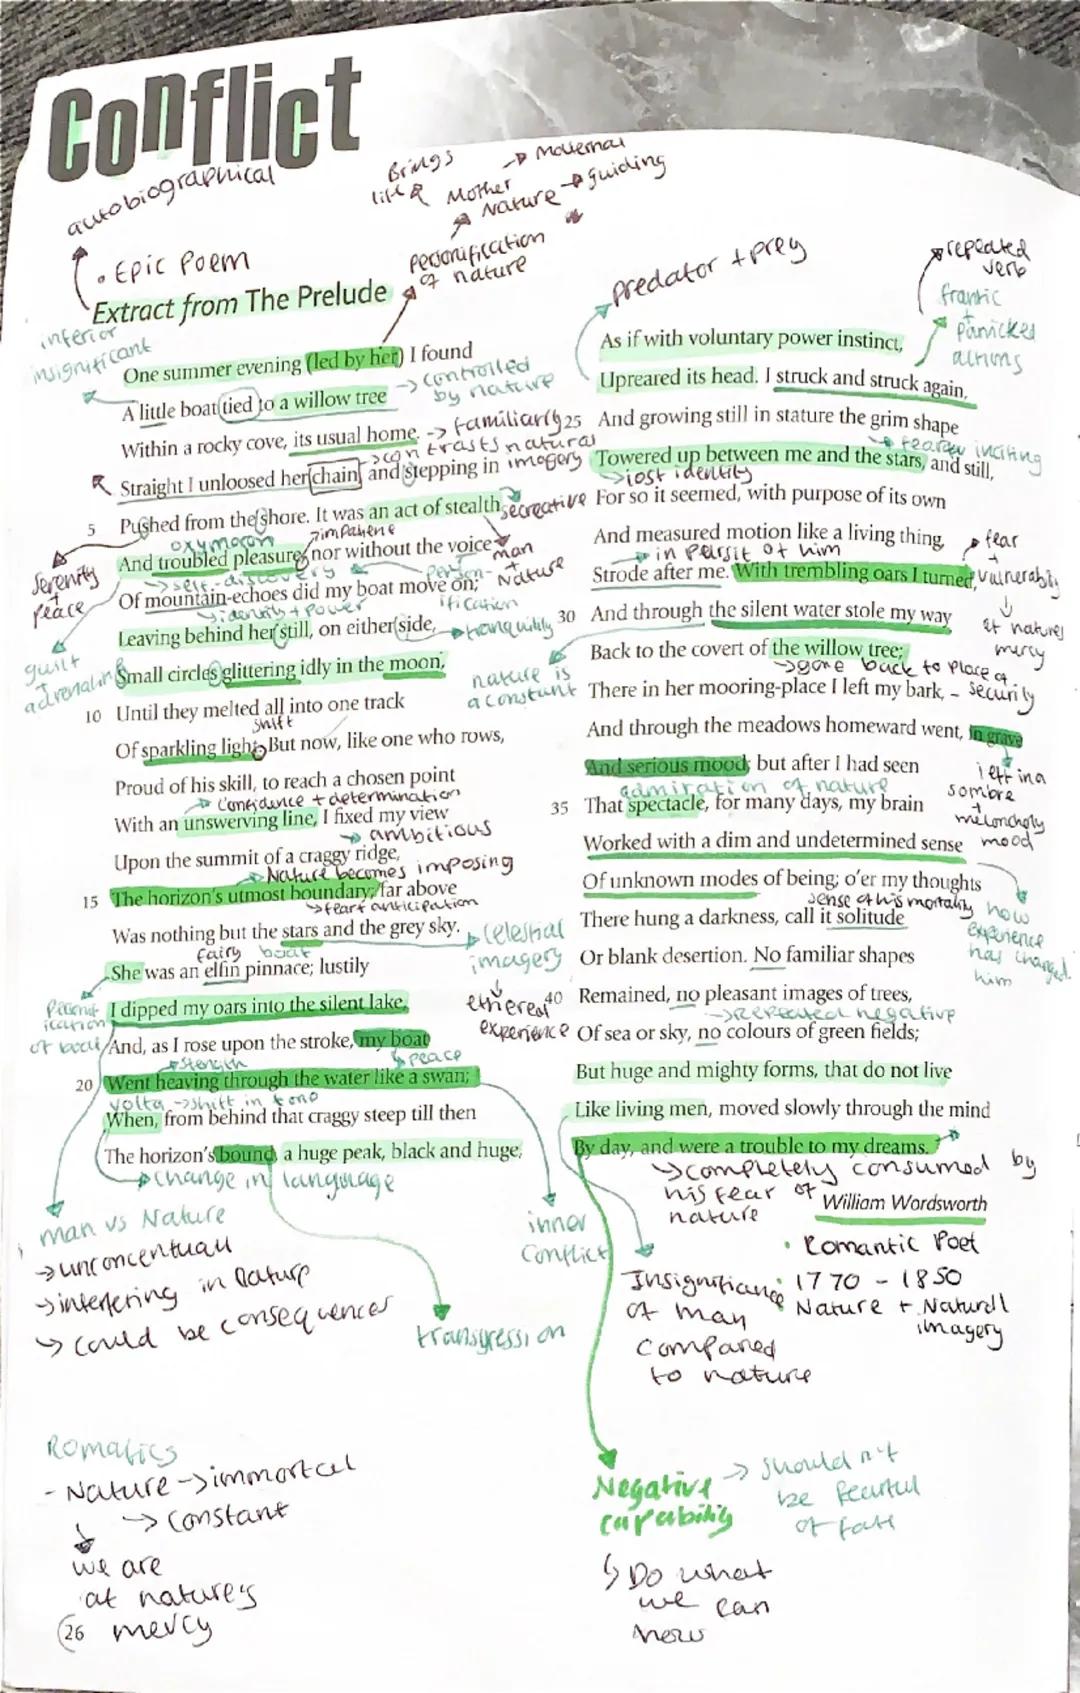 Conflict
autobiographical
Brings
life &
Mother
Nature
→ maternal
→ guiding
• Epic Poem
personification
of nature
Extract from The Prelude
inferior
insignificant
One summer evening (led by her) I found
A little boat tied to a willow tree
→ controlled
by nature
Within a rocky cove, its usual home.
→ familiarity
→ contrasts natural
imagery
Straight I unloosed her chain, and stepping in
5 Pushed from the shore. It was an act of stealth
secreative
oxymoron
impatiene
And troubled pleasure, nor without the voice
man
Nature
→ self-discovery
person-
ification
Serenity
+
peace
Of mountain-echoes did my boat move on;
→ identity + power
Leaving behind her still, on either side,
→ tranquility
guilt
+
adrenaline
Small circles glittering idly in the moon,
nature is
a constant
10 Until they melted all into one track
shift
Of sparkling light. But now, like one who rows,
Proud of his skill, to reach a chosen point
→ Confidence + determination
With an unswerving line, I fixed my view
→ ambitious
Upon the summit of a craggy ridge,
→ Nature becomes imposing
15 The horizon's utmost boundary; far above
→ fear + anticipation
Was nothing but the stars and the grey sky.
→ Celestial
imagery
↓
ethereal
experience
fairy boat
She was an elfin pinnace; lustily
Personif
ication
of boat
I dipped my oars into the silent lake,
And, as I rose upon the stroke, my boat
→ stength
→ peace
20 Went heaving through the water like a swan;
volta → shift in tone
When, from behind that craggy steep till then
The horizon's bound, a huge peak, black and huge,
→ Change in language
man vs Nature
→ interfering in Nature
→ could be consequences
transgression
inner
Conflict
Romatics
- Nature → immortal
→ constant
↓
we are
at nature's
mercy
26
predator + prey
repeated
verb
frantic
+
panicked
actions
As if with voluntary power instinct,
Upreared its head. I struck and struck again,
25 And growing still in stature the grim shape
→ fear inciting
Towered up between me and the stars, and still,
→ lost identity
For so it seemed, with purpose of its own
And measured motion like a living thing,
→ in persit of him
Strode after me. With trembling oars I turned,
→ fear
+
vulnerability
↓
at natures
mercy
30 And through the silent water stole my way
Back to the covert of the willow tree;
→ gone back to place of
security
There in her mooring-place I left my bark, –
And through the meadows homeward went, in grave
And serious mood; but after I had seen
left in a
sombre
+
meloncholy
mood
admiration of nature
35 That spectacle, for many days, my brain
Worked with a dim and undetermined sense
Of unknown modes of being; o'er my thoughts
sense of his mortality
There hung a darkness, call it solitude
how
experience
has changed
him
Or blank desertion. No familiar shapes
40 Remained, no pleasant images of trees,
→ repeated negative
Of sea or sky, no colours of green fields;
But huge and mighty forms, that do not live
Like living men, moved slowly through the mind
By day, and were a trouble to my dreams.
→ completely consumed by
his fear of
nature
William Wordsworth
• Romantic Poet
• 1770 - 1850
• Nature + Naturall
imagery
Insignificance
of man
compared
to nature
Negative
capability
→ Should n't
be fearful
of fate
↳ Do what
we can
now